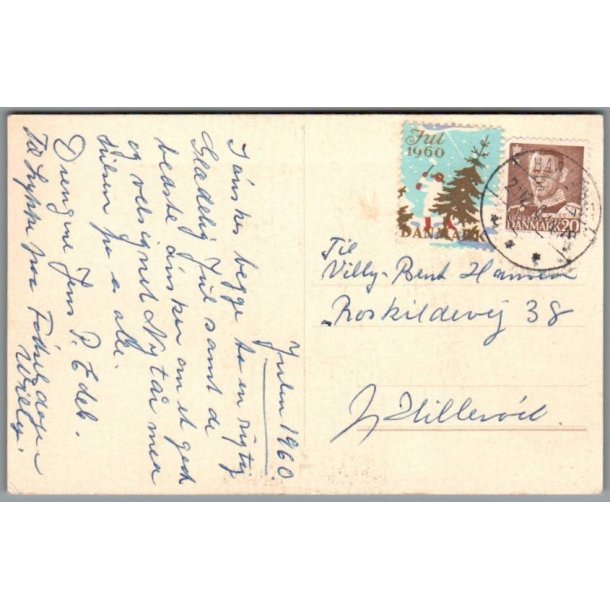 Julen 1960.
I ønskes begge to en rigtig
Glædelig Jul samt de
bedste Ønsker om et godt
og velsignet Nytår med
hilsen fra alle.
Drengene Jens P. Edel.
Til Lykke paa Fødselsdagen
Willy.
Jul
1960
DANMARK
DANMARK 20
Til
Villy-Bent Hansen
Roskildevej 38
Hillerød.